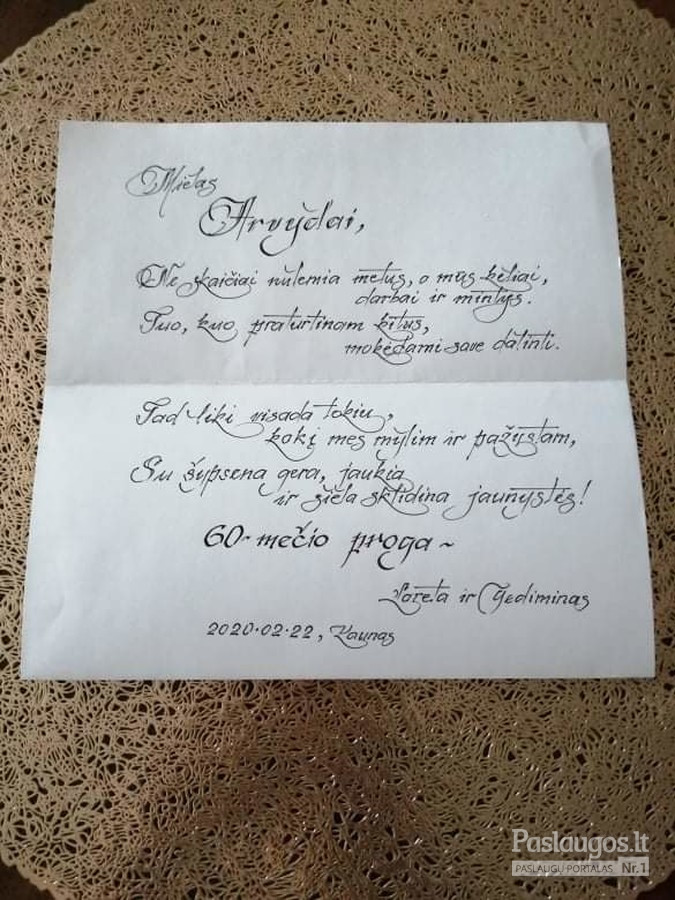 Mielas
Arvydai,
Ne skaičiai nulemia metus, o mūs keliai,
darbai ir mintys.
Tuo, kuo praturtinam kitus,
mokėdami save dalinti.
Tad liki visada tokiu,
kokį mes mylim ir pažįstam,
Su šypsena gera, jaukia
ir siela sklidina jaunystės!
60-mečio proga ~
Loreta ir Gediminas
2020.02.22, Kaunas
Paslaugos.lt
PASLAUGŲ PORTALAS Nr.1